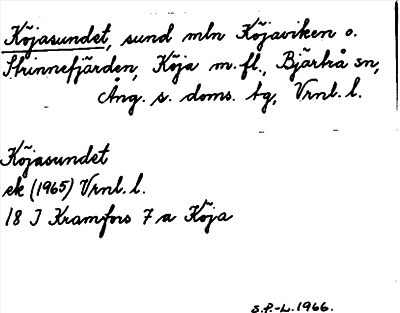 Köjasundet, sund mln Köjaviken o.
Strinnefjärden, Köja m.fl., Bjärtrå sn,
Ång. s. doms. tg, Vrnl. l.
Köjasundet
ek (1965) Vrnl. l.
18 I Kramfors 7 a Köja
S.P.-L. 1966.